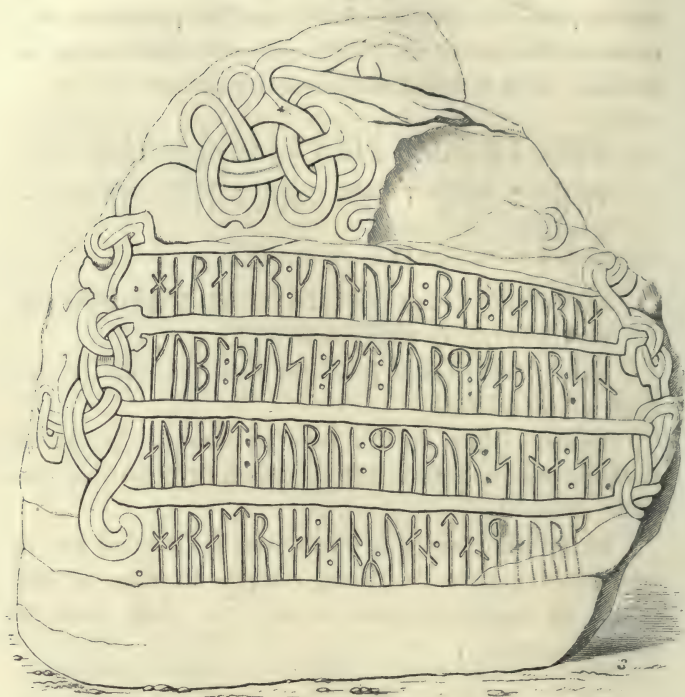 ᚼᛅᚱᛅᛚᛏᚱ:ᚴᚢᚾᚢᚴᛦ:ᛒᛅᚦ:ᚴᛅᚢᚱᚢᛅ
ᚴᚢᛒᛚ:ᚦᛅᚢᛋᛁ:ᛅᚠᛏ:ᚴᚢᚱᛘ:ᚠᛅᚦᚢᚱ:ᛋᛁᚾ
ᛅᚢᚴᛅᚠᛏ:ᚦᛁᚢᚱᚢᛁ:ᛘᚢᚦᚢᚱ:ᛋᛁᚾᛅ:ᛋᛅ
ᚼᛅᚱᛅᛚᛏᚱᛁᛅᛋ:ᛋᚬᛦ:ᚢᛅᚾ:ᛏᛅᚾᛘᛅᚢᚱᚴ